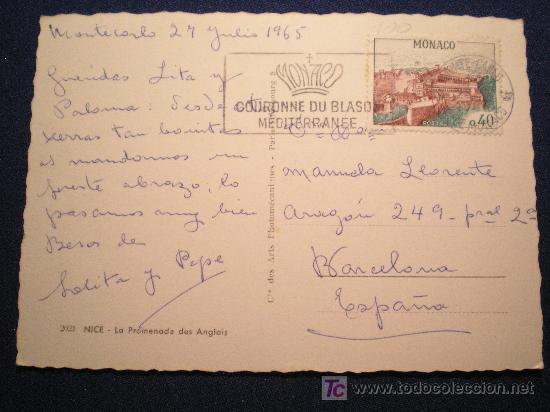 Montecarlo 27 Julio 1965
Queridas Lita y
Paloma: Desde
tan bonitas
os mandamos un
fuerte abrazo, lo
pasamos muy bien
Besos de
Lolita y Pepe
2021 NICE - La Promenade des Anglais
Cie des Arts Photomécaniques - Paris
MONACO
COURONNE DU BLASON
MEDITERRANEE
MONACO
POSTES
0,40
Manuela Llorente
Aragón 249 - pral 2ª
Barcelona
España
todocoleccion
www.todocoleccion.net